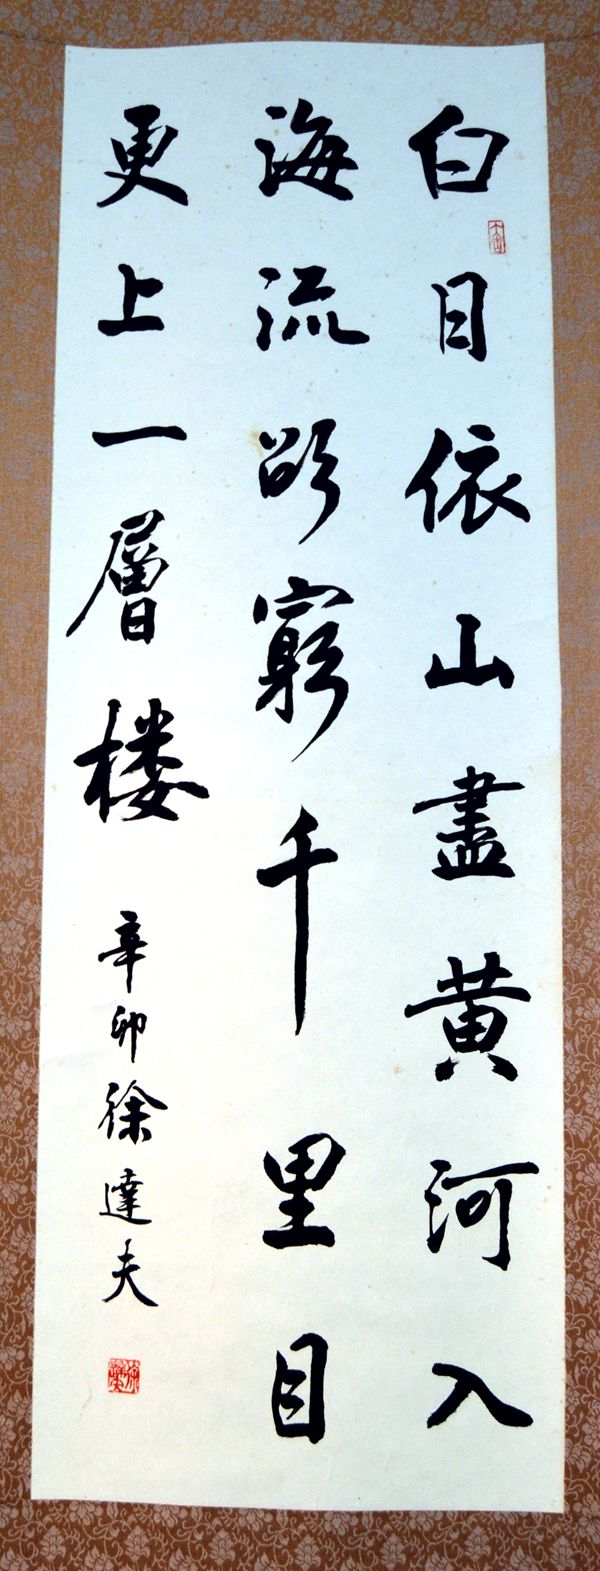 白日依山盡黄河入
海流欲窮千里目
更上一層楼
辛卯徐達夫